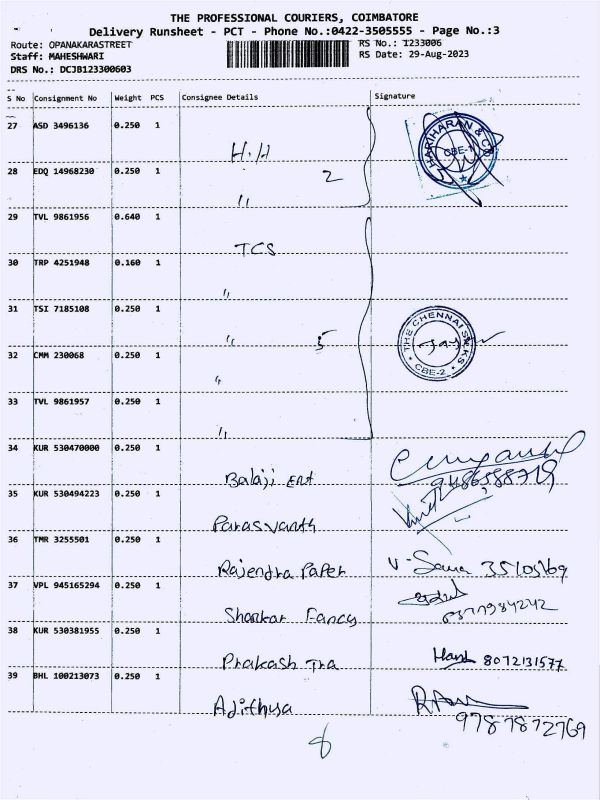 THE PROFESSIONAL COURIERS, COIMBATORE
Delivery Runsheet - PCT - Phone No.:0422-3505555 - Page No.:3
Route: OPANAKARASTREET
RS No.: 1233006
Staff: MAHESHWARI
RS Date: 29-Aug-2023
DRS No.: DCJB123300603
S No Consignment No Weight PCS Consignee Details Signature
27 ASD 3496136 0.250 1
H.H
HARIHARAN & CO CBE-1
28 EDQ 14968230 0.250 1
2
"
29 TVL 9861956 0.640 1
TCS
30 TRP 4251948 0.160 1
"
31 TSI 7185108 0.250 1
" 5
THE CHENNAI SILKS CBE-2
32 CMM 230068 0.250 1
"
33 TVL 9861957 0.250 1
"
34 KUR 530470000 0.250 1
Balaji Ent
35 KUR 530494223 0.250 1
Parasvanth
36 TMR 3255501 0.250 1
Rajendra Paper
37 VPL 945165294 0.250 1
Shankar Fancy
38 KUR 530381955 0.250 1
Prakash Tra 8072131577
39 BHL 100213073 0.250 1
Adithya
9787872769
8